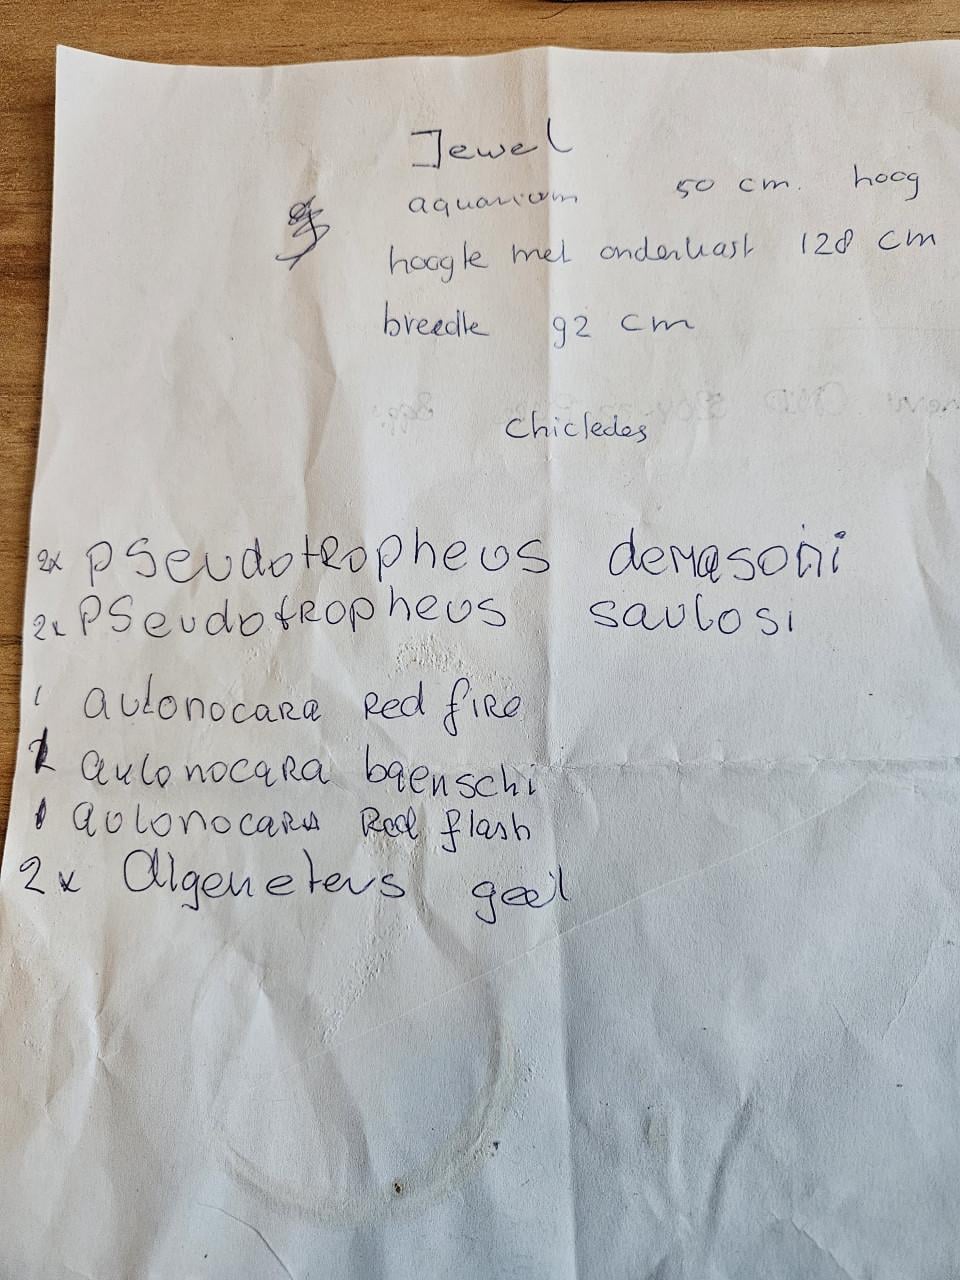 Jewel
aquarium 50 cm. hoog
hoogte met onderkast 128 cm
breedte 92 cm
chicledes
2x PSeudotRopheus demasoni
2x PSeudotRopheus saulosi
1 aulonocara Red fire
1 aulonocara baenschi
1 aulonocara Red flash
2x Algeneters geel